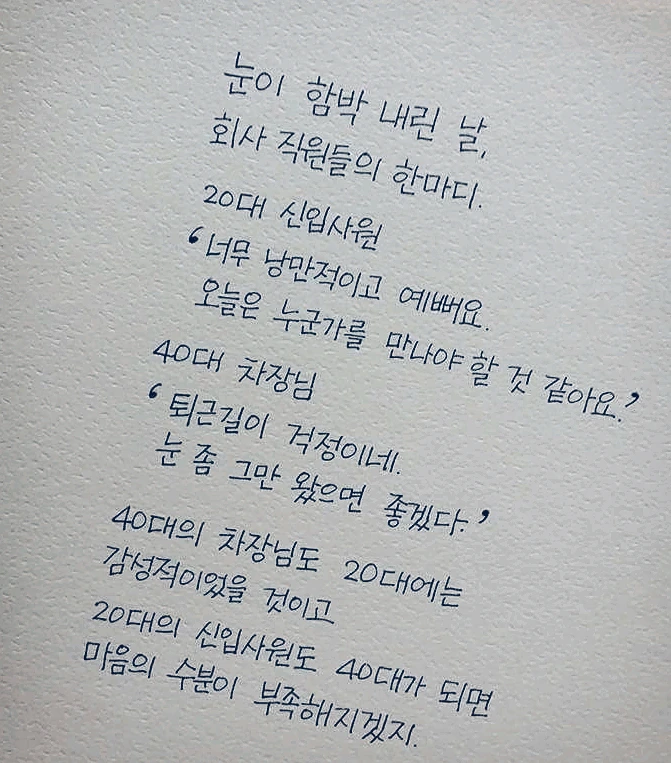 눈이 함박 내린 날,
회사 직원들의 한마디.
20대 신입사원
‘너무 낭만적이고 예뻐요.
오늘은 누군가를 만나야 할 것 같아요.’
40대 차장님
‘퇴근길이 걱정이네.
눈 좀 그만 왔으면 좋겠다.’
40대의 차장님도 20대에는
감성적이었을 것이고
20대의 신입사원도 40대가 되면
마음의 수분이 부족해지겠지.